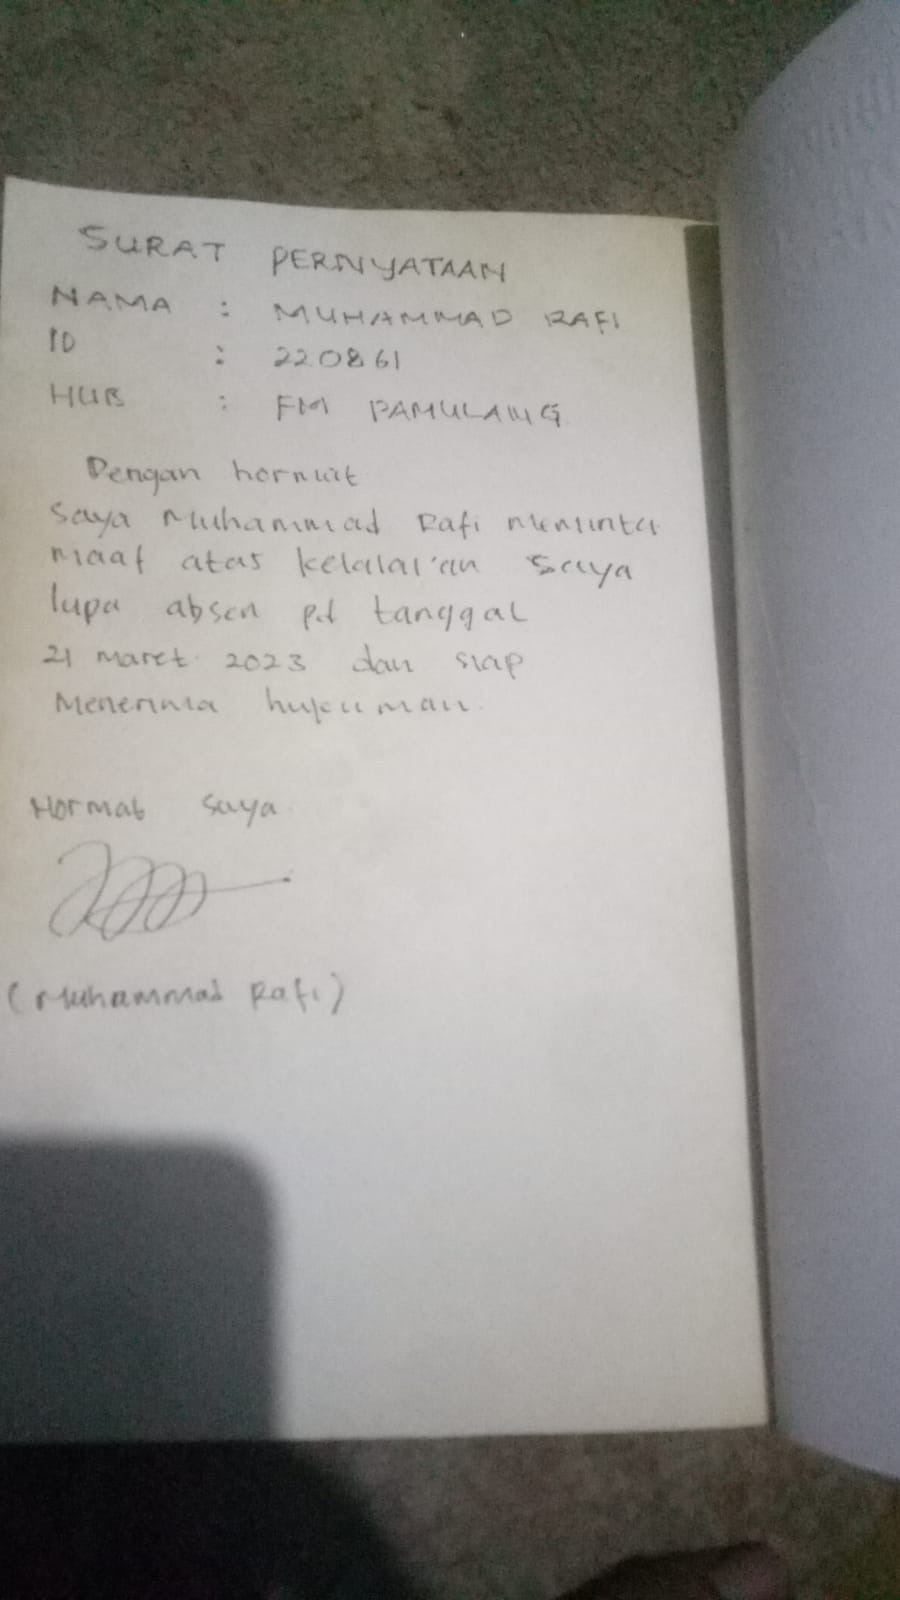 SURAT PERNYATAAN
NAMA : MUHAMMAD RAFI
ID : 220861
HUB : FM PAMULANG
Dengan hormat
Saya Muhammad Rafi meminta
maaf atas kelalai'an saya
lupa absen pd tanggal
21 maret 2023 dan siap
Menerima hukuman.
Hormat saya
(Muhammad Rafi)